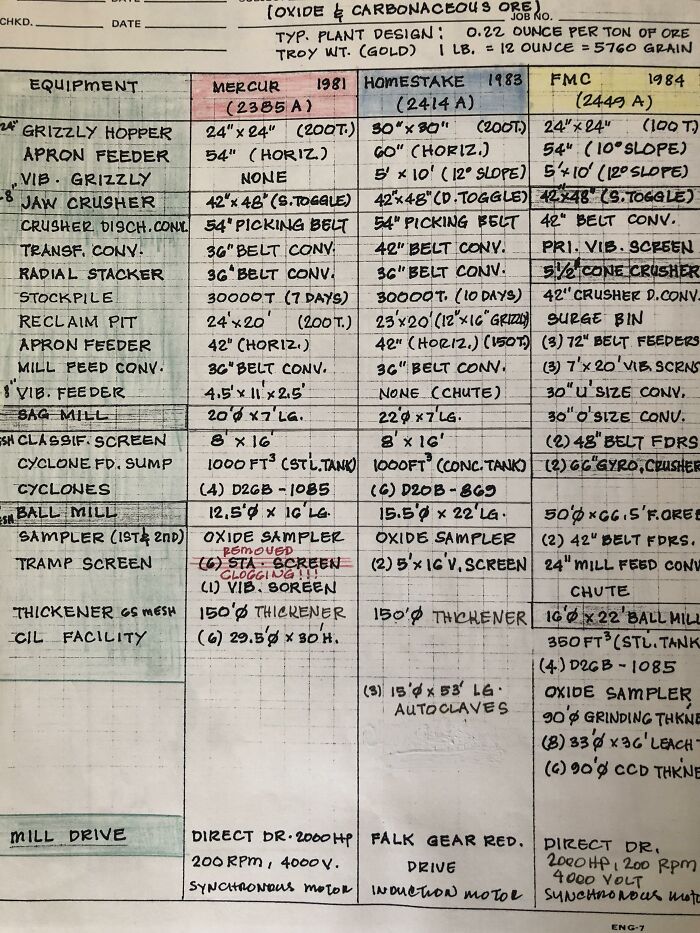 DATE DATE
(OXIDE & CARBONACEOUS ORE)
CHKD. DATE JOB NO.
TYP. PLANT DESIGN: 0.22 OUNCE PER TON OF ORE
TROY WT. (GOLD) 1 LB. = 12 OUNCE = 5760 GRAIN
EQUIPMENT MERCUR 1981 HOMESTAKE 1983 FMC 1984
(2385 A) (2414 A) (2449 A)
24" GRIZZLY HOPPER 24" x 24" (200T.) 30" x 30" (200T.) 24" x 24" (100T.)
APRON FEEDER 54" (HORIZ.) 60" (HORIZ.) 54" (10° SLOPE)
VIB. GRIZZLY NONE 5' x 10' (12° SLOPE) 5' x 10' (12° SLOPE)
8" JAW CRUSHER 42" x 48" (S. TOGGLE) 42" x 48" (D. TOGGLE) 42" x 48" (S. TOGGLE)
CRUSHER DISCH. CONV. 54" PICKING BELT 54" PICKING BELT 42" BELT CONV.
TRANSF. CONV. 36" BELT CONV. 42" BELT CONV. PRI. VIB. SCREEN
RADIAL STACKER 36" BELT CONV. 36" BELT CONV. 5 1/2' CONE CRUSHER
STOCKPILE 30000T (7 DAYS) 30000T. (10 DAYS) 42" CRUSHER D. CONV.
RECLAIM PIT 24' x 20' (200T.) 23' x 20' (12" x 16" GRIZZLY) SURGE BIN
APRON FEEDER 42" (HORIZ.) 42" (HORIZ.) (150T.) (3) 72" BELT FEEDERS
MILL FEED CONV. 36" BELT CONV. 36" BELT CONV. (3) 7' x 20' VIB. SCRNS
8" VIB. FEEDER 4.5' x 11' x 2.5' NONE (CHUTE) 30" U'SIZE CONV.
SAG MILL 20'Ø x 7' LG. 22'Ø x 7' LG. 30" O'SIZE CONV.
SH CLASSIF. SCREEN 8' x 16' 8' x 16' (2) 48" BELT FDRS
CYCLONE FD. SUMP 1000 FT³ (STL. TANK) 1000 FT³ (CONC. TANK) (2) 66" GYRO. CRUSHER
CYCLONES (4) D26B - 1085 (6) D20B - 869
SH BALL MILL 12.5'Ø x 16' LG. 15.5'Ø x 22' LG. 50'Ø x 66.5' F. ORE B
SAMPLER (1ST & 2ND) OXIDE SAMPLER OXIDE SAMPLER (2) 42" BELT FDRS.
REMOVED
TRAMP SCREEN (6) STA. SCREEN (2) 5' x 16' V. SCREEN 24" MILL FEED CONV
CLOGGING!!!
(1) VIB. SCREEN CHUTE
THICKENER 65 MESH 150'Ø THICKENER 150'Ø THICKENER 16'Ø x 22' BALL MILL
CIL FACILITY (6) 29.5'Ø x 30' H. 350 FT³ (STL. TANK
(4) D26B - 1085
(3) 15'Ø x 53' LG. OXIDE SAMPLER
AUTOCLAVES 90'Ø GRINDING THKNE
(8) 33'Ø x 36' LEACH
(6) 90'Ø CCD THKNE
MILL DRIVE DIRECT DR. 2000 HP FALK GEAR RED. DIRECT DR.
200 RPM, 4000 V. DRIVE 2000 HP, 200 RPM
4000 VOLT
SYNCHRONOUS MOTOR INDUCTION MOTOR SYNCHRONOUS MOTO
ENG-7